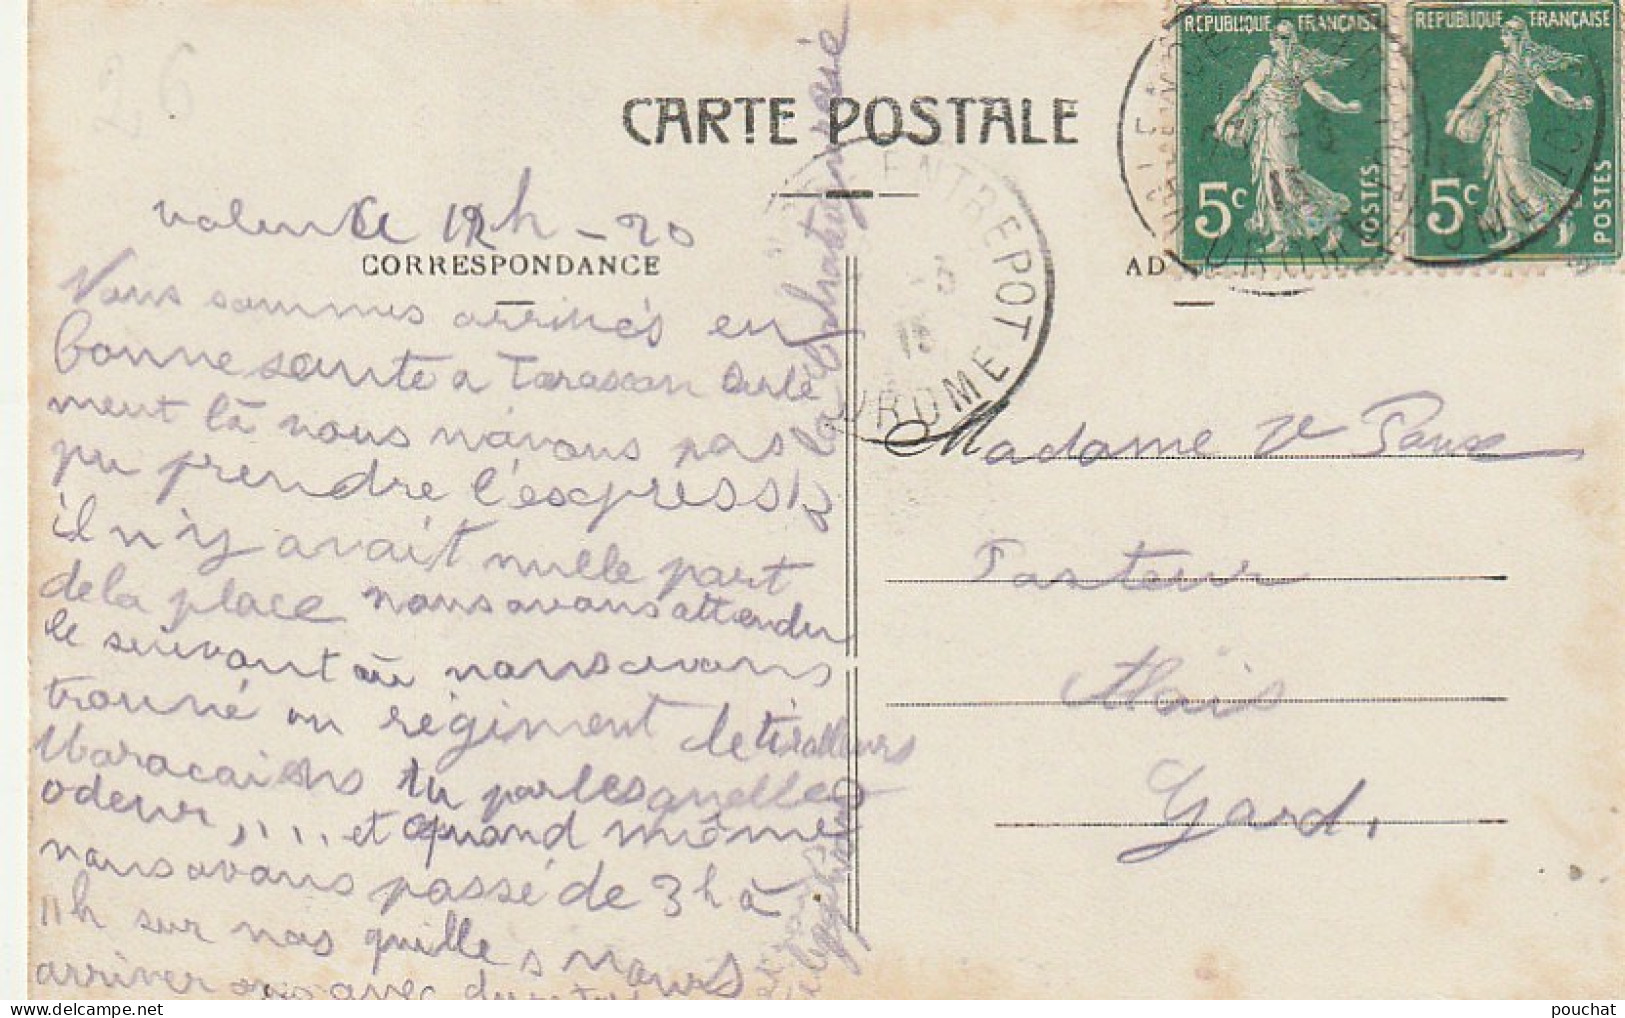 26
CARTE POSTALE
RÉPUBLIQUE FRANÇAISE
5c
POSTES
RÉPUBLIQUE FRANÇAISE
5c
POSTES
ENTREPOT
DROME
valence 12h - 20
CORRESPONDANCE
AD
Nous sommes arrivés en
bonne sante a Tarascan
ment là nous n'avons pas
pu prendre l'express
il n'y avait nulle part
de la place nous avons attendu
le suivant ou nous avons
trouvé un régiment de tirailleurs
Maracains tu parles quelle
odeur, ... et quand même
nous avons passé de 3h à
11h sur nos quilles nous
arriver avec
Madame Ve Paux
Pasteur
Alais
Gard.
pouchat